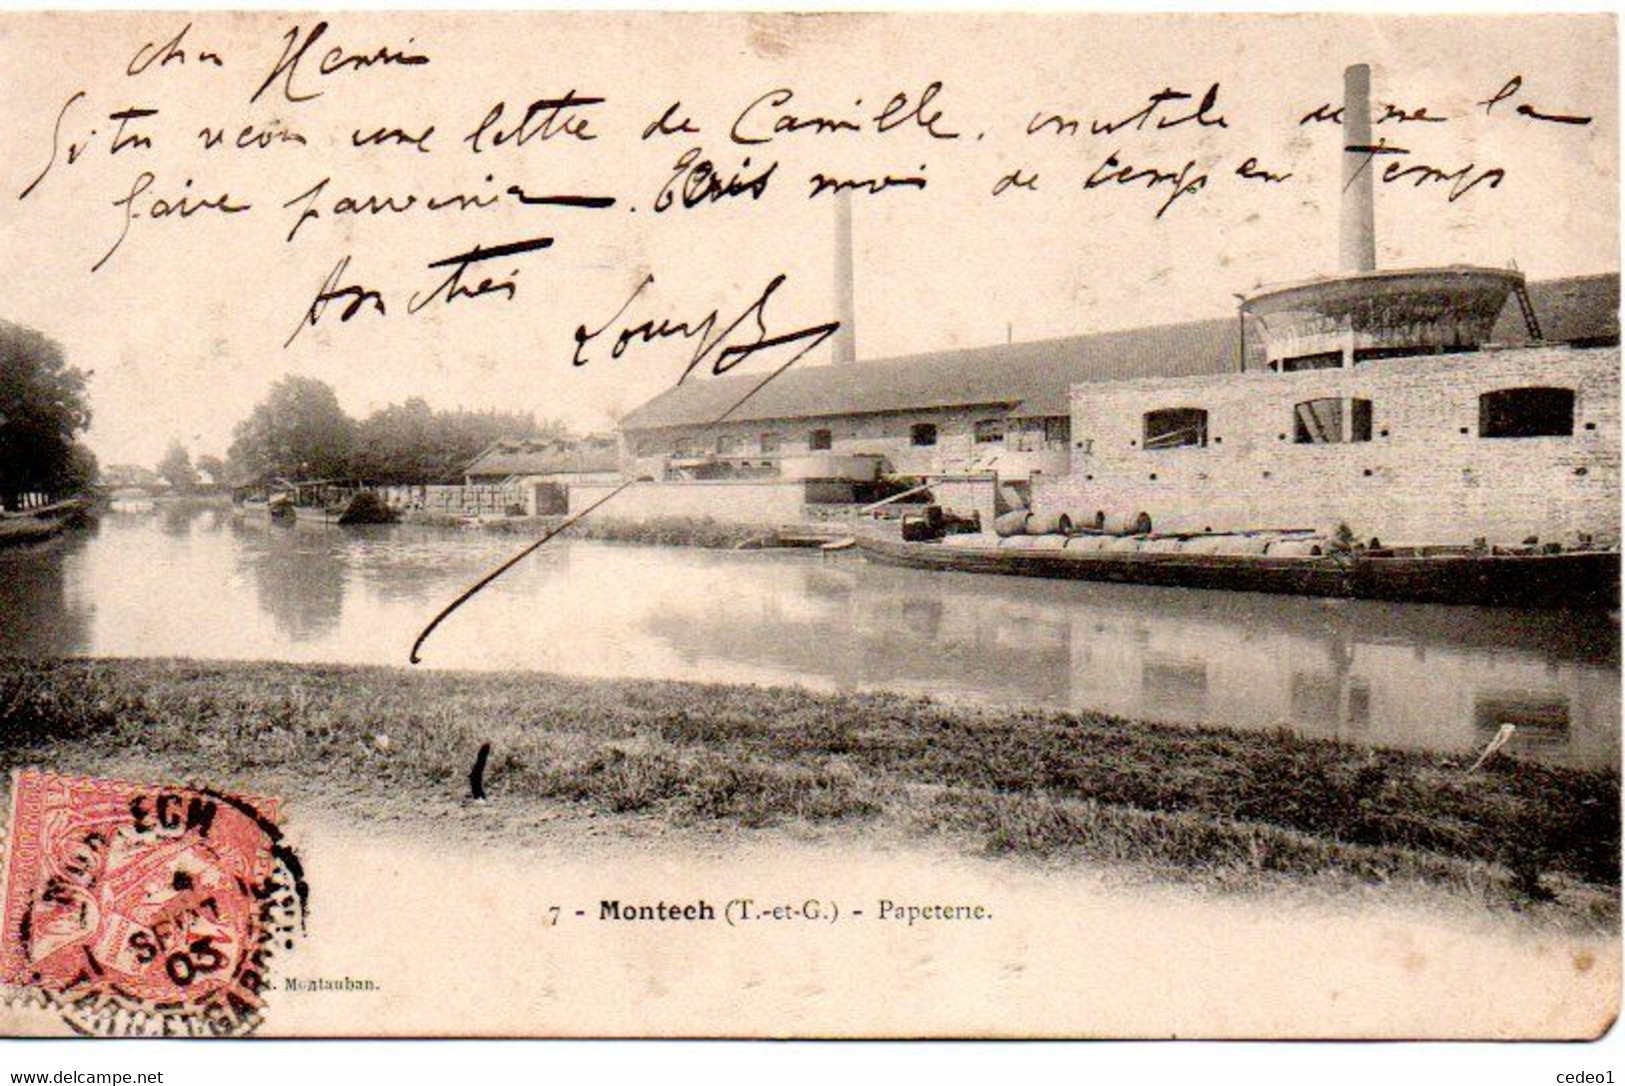 cher Henri
Si tu recois une lettre de Camille, inutile de me la
faire parvenir. Ecris moi de temps en temps
Louis
MONTECH
1
SEPT
03
TARN-ET-GARONNE
7 - Montech (T.-et-G.) - Papeterie.
Montauban.
delcampe.net
cedeo1